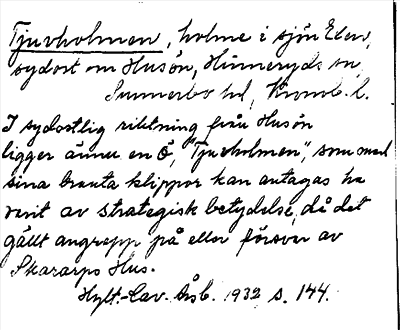 Tjuvholmen, holme i sjön Elen,
sydost om Husön, Hinneryds sn,
Sunnerbo hd, Kronob. l.
I sydostlig riktning från Husön
ligger ännu en ö, "Tjuvholmen", som med
sina branta klippor kan antagas ha
varit av strategisk betydelse, då det
gällt angrepp på eller försvar av
Skararps Hus.
Hylt.-Cav. Årsb. 1932 s. 144.